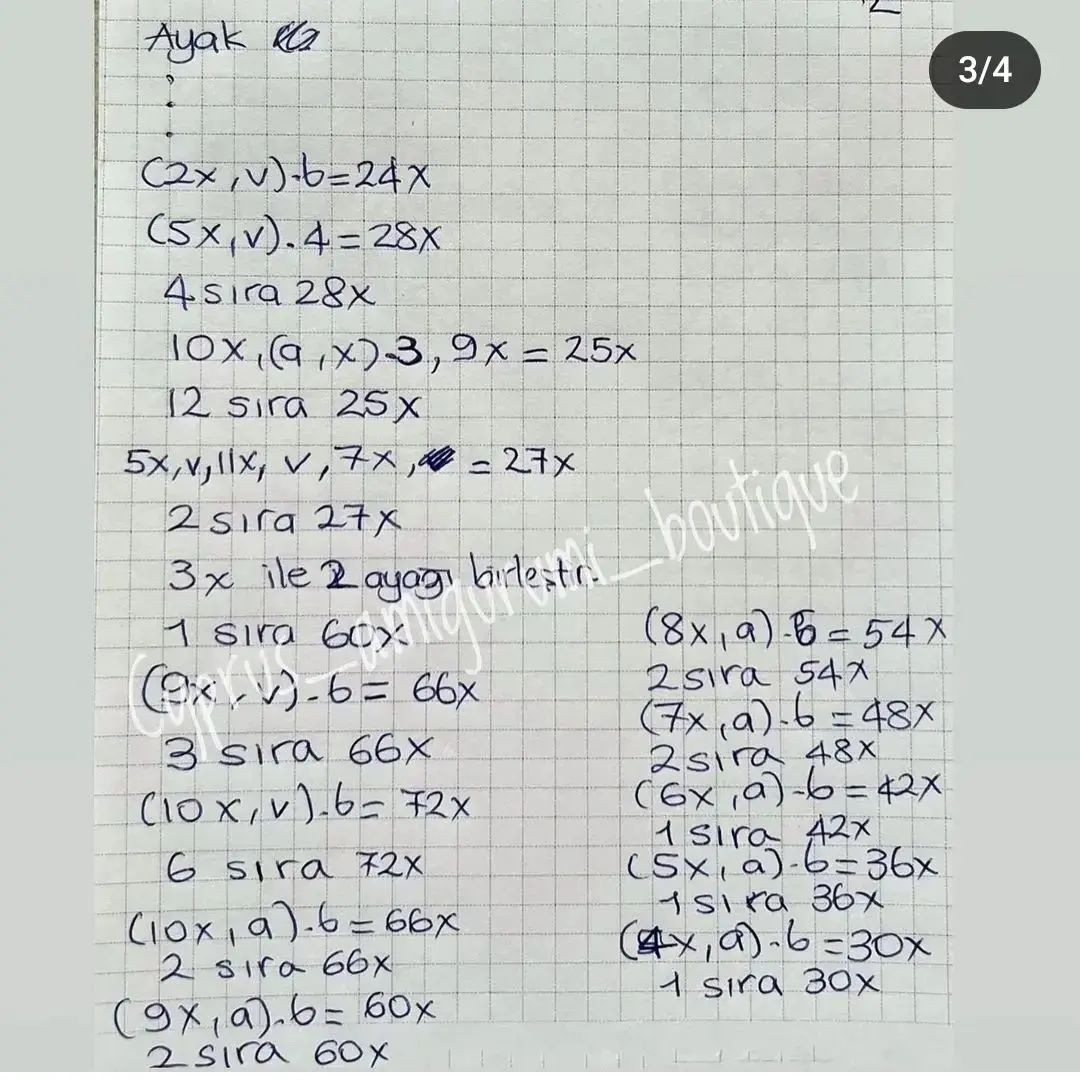 Ayak
3/4
(2x,v).6=24x
(5x,v).4=28x
4 sıra 28x
10x,(a,x).3,9x=25x
12 sıra 25x
5x,v,11x,v,7x,=27x
2 sıra 27x
3x ile 2 ayağı birleştir.
1 sıra 60x
(9x,v).6=66x
3 sıra 66x
(10x,v).6=72x
6 sıra 72x
(10x,a).6=66x
2 sıra 66x
(9x,a).6=60x
2 sıra 60x
(8x,a).6=54x
2 sıra 54x
(7x,a).6=48x
2 sıra 48x
(6x,a).6=42x
1 sıra 42x
(5x,a).6=36x
1 sıra 36x
(4x,a).6=30x
1 sıra 30x
Cyprus_amigurumi_boutique